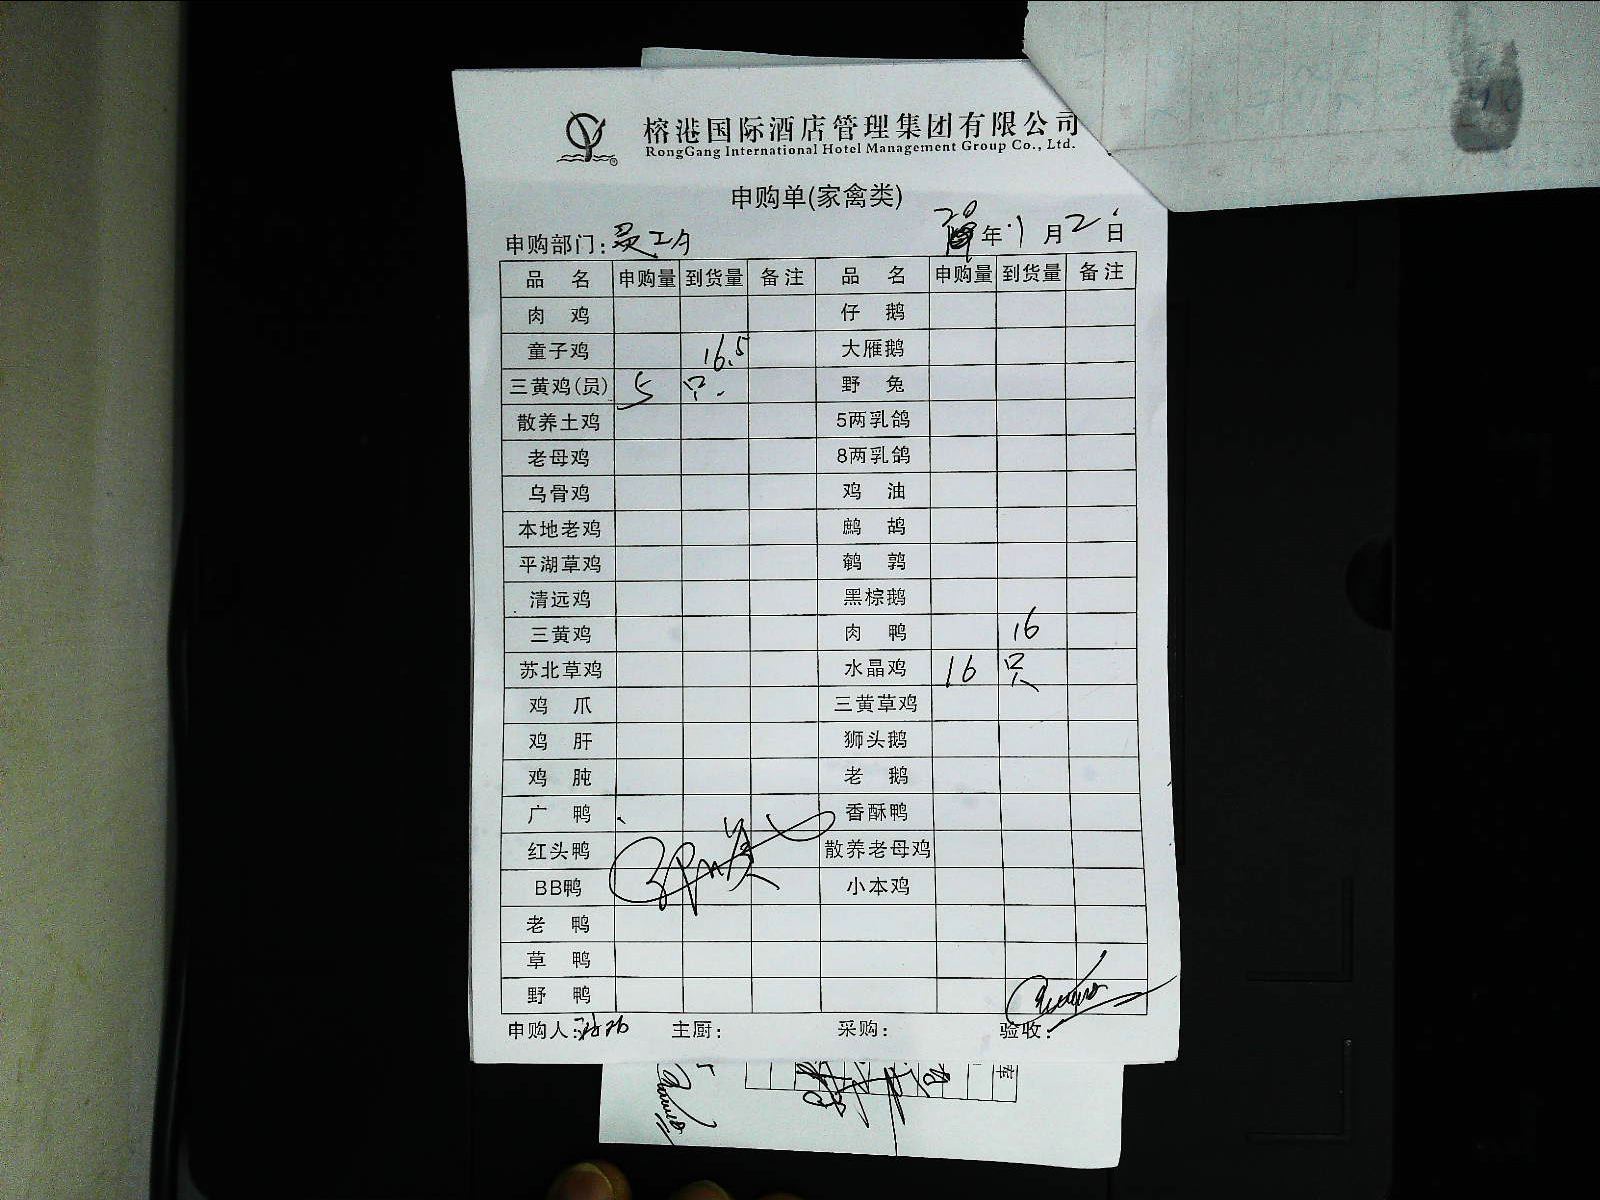 榕港国际酒店管理集团有限公司
RongGang International Hotel Management Group Co., Ltd.
申购单(家禽类)
申购部门: 员工 20 年 1 月 2 日
品 名 申购量 到货量 备注 品 名 申购量 到货量 备注
肉 鸡 仔 鹅
童子鸡 16.5 大雁鹅
三黄鸡(员) 5 只 野 兔
散养土鸡 5两乳鸽
老母鸡 8两乳鸽
乌骨鸡 鸡 油
本地老鸡 鹧 鸪
平湖草鸡 鹌 鹑
清远鸡 黑棕鹅
三黄鸡 肉 鸭 16
苏北草鸡 水晶鸡 16 只
鸡 爪 三黄草鸡
鸡 肝 狮头鹅
鸡 肫 老 鹅
广 鸭 香酥鸭
红头鸭 散养老母鸡
BB鸭 小本鸡
老 鸭
草 鸭
野 鸭
申购人: 主厨: 采购: 验收: